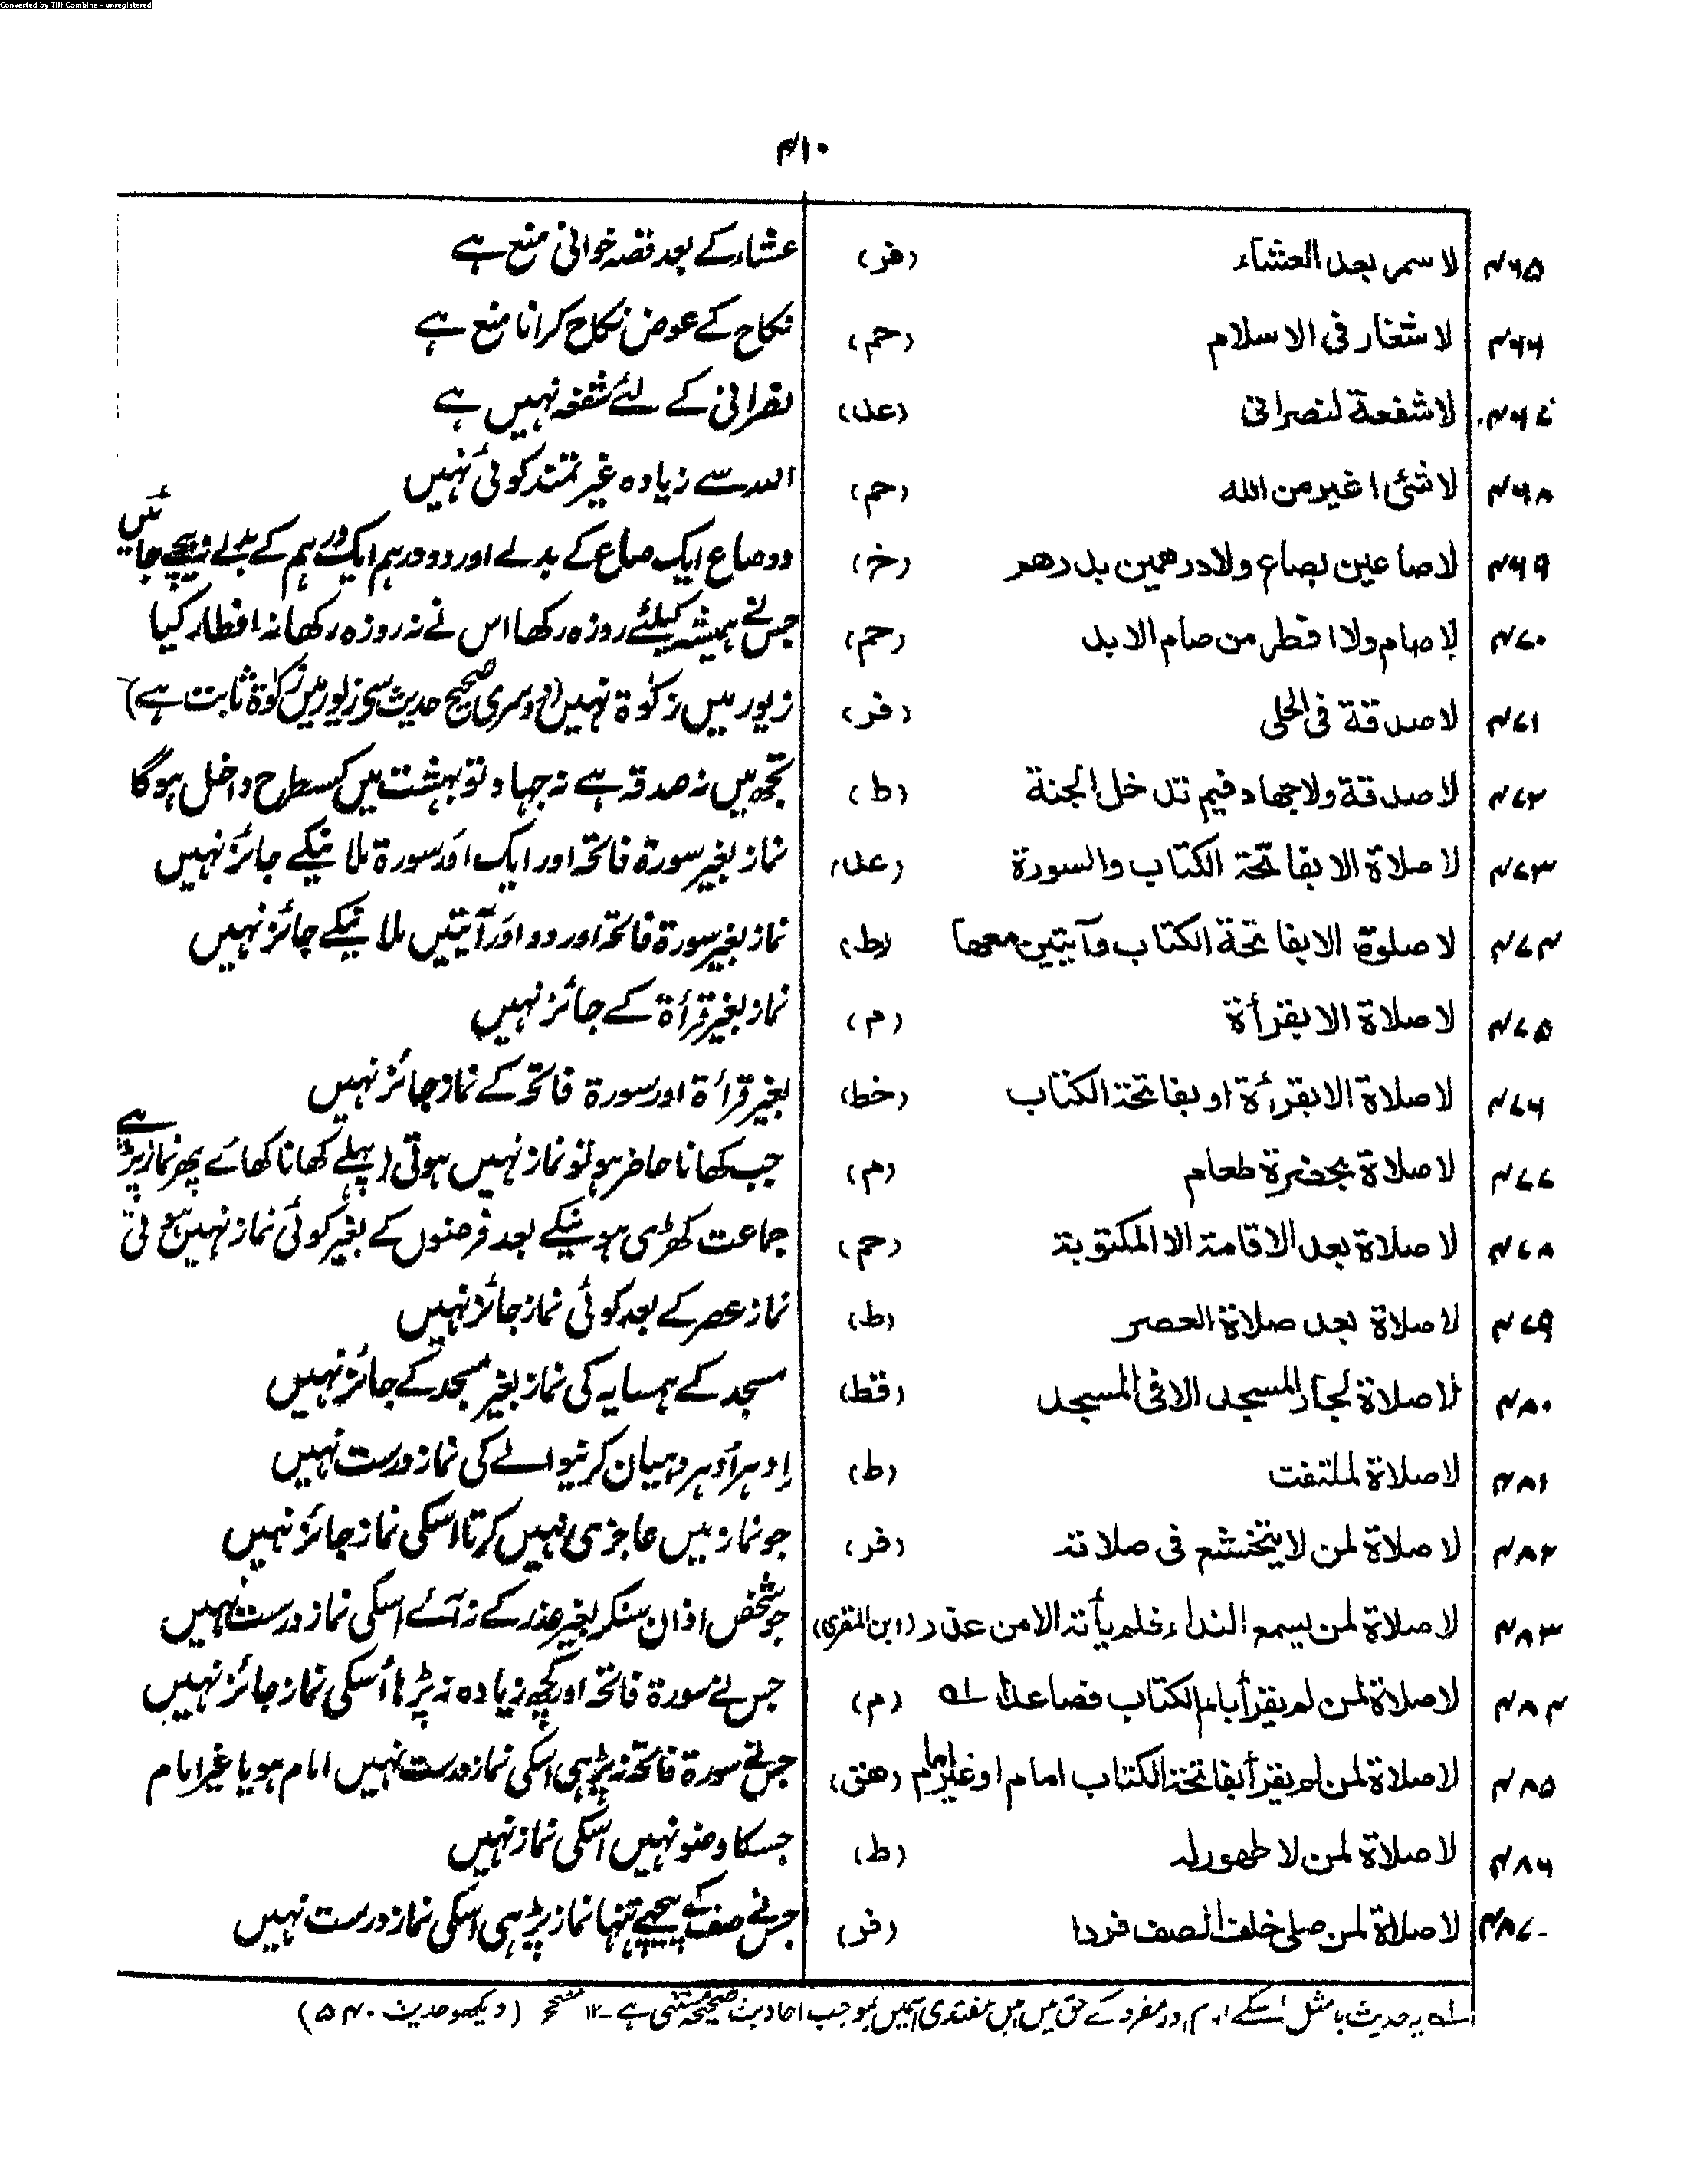 Converted by Tiff Combine - unregistered
۴۱۰
۴۶۵ لا سمر بعد العشاء (فر) عشاء کے بعد قصہ خوانی منع ہے
۴۶۶ لا شغار فی الاسلام (حم) نکاح کے عوض نکاح کرانا منع ہے
۴۶۷ لا شفعة لنصرانی (عد) نصرانی کے لئے شفعہ نہیں ہے
۴۶۸ لا شئ اغیر من الله (حم) اللہ سے زیادہ غیرتمند کوئی نہیں
۴۶۹ لا صاعین بصاع ولا درهمین بدرهم (خ) دو صاع ایک صاع کے بدلے اور دو درہم ایک درہم کے بدلے نہ بیچے جائیں
۴۷۰ لا صام ولا افطر من صام الابد (حم) جس نے ہمیشہ کیلئے روزہ رکھا اس نے نہ روزہ رکھا نہ افطار کیا
۴۷۱ لا صدقة فی الحلی (فر) زیور میں زکوٰة نہیں (دوسری صحیح حدیث سے زیور میں زکوٰة ثابت ہے)
۴۷۲ لا صدقة ولا جهاد فبم تدخل الجنة (ط) تجھ میں نہ صدقہ ہے نہ جہاد تو بہشت میں کسطرح داخل ہوگا
۴۷۳ لا صلاة الا بفاتحة الکتاب والسورة (عد) نماز بغیر سورة فاتحہ اور ایک اور سورة ملانیکے جائز نہیں
۴۷۴ لا صلوة الا بفاتحة الکتاب وآیتین معها (ط) نماز بغیر سورة فاتحہ اور دو اور آیتیں ملانیکے جائز نہیں
۴۷۵ لا صلاة الا بقرأة (م) نماز بغیر قرأة کے جائز نہیں
۴۷۶ لا صلاة الا بقرأة او بفاتحة الکتاب (خط) بغیر قرأة اور سورة فاتحہ کے نماز جائز نہیں
۴۷۷ لا صلاة بحضرة طعام (م) جب کھانا حاضر ہو تو نماز نہیں ہوتی (پہلے کھانا کھائے پھر نماز پڑہے
۴۷۸ لا صلاة بعد الاقامة الا المکتوبة (حم) جماعت کھڑی ہونیکے بعد فرضوں کے بغیر کوئی نماز نہیں ہوتی
۴۷۹ لا صلاة بعد صلاة العصر (ط) نماز عصر کے بعد کوئی نماز جائز نہیں
۴۸۰ لا صلاة لجار المسجد الا فی المسجد (قط) مسجد کے ہمسایہ کی نماز بغیر مسجد کے جائز نہیں
۴۸۱ لا صلاة لملتفت (ط) اِدہر اُدہر دہیان کرنیوالے کی نماز درست نہیں
۴۸۲ لا صلاة لمن لا یتخشع فی صلاته (فر) جو نماز میں عاجزی نہیں کرتا اسکی نماز جائز نہیں
۴۸۳ لا صلاة لمن یسمع النداء فلم یأته الا من عذر (ابن المقری) جو شخص اذان سنکر بغیر عذر کے نہ آئے اسکی نماز درست نہیں
۴۸۴ لا صلاة لمن لم یقرأ بام الکتاب فصاعدا ؎۱ (م) جس نے سورة فاتحہ اور کچھ زیادہ نہ پڑہا اُسکی نماز جائز نہیں
۴۸۵ لا صلاة لمن لم یقرأ بفاتحة الکتاب امام او غیر امام (هق) جس نے سورة فاتحہ نہ پڑہی اسکی نماز درست نہیں امام ہو یا غیر امام
۴۸۶ لا صلاة لمن لا طهور له (ط) جسکا وضو نہیں اسکی نماز نہیں
۴۸۷ لا صلاة لمن صلی خلف الصف فردا (فر) جس نے صف کے پیچھے تنہا نماز پڑہی اسکی نماز درست نہیں
؎۱ یہ حدیث یا مثل اسکے امام اور منفرد کے حق میں ہیں مقتدی اسمیں بموجب احادیث صحیحہ مستثنی ہے ۔ ۱۲ مصحح (دیکھو حدیث ۵۴۰)